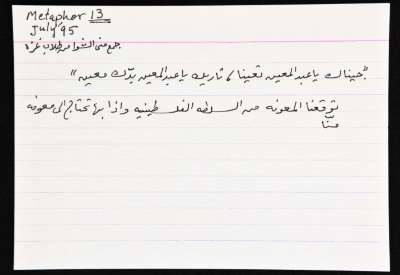 Metaphor 13
July/95
جمع منى الشوا من طلاب غزة
"جيناك يا عبد المعين تعينا، تاريك يا عبد المعين بدّك معين"
توقعنا المعونه من السلطه الفلسطينيه واذا بها تحتاج الى معونه
منّا